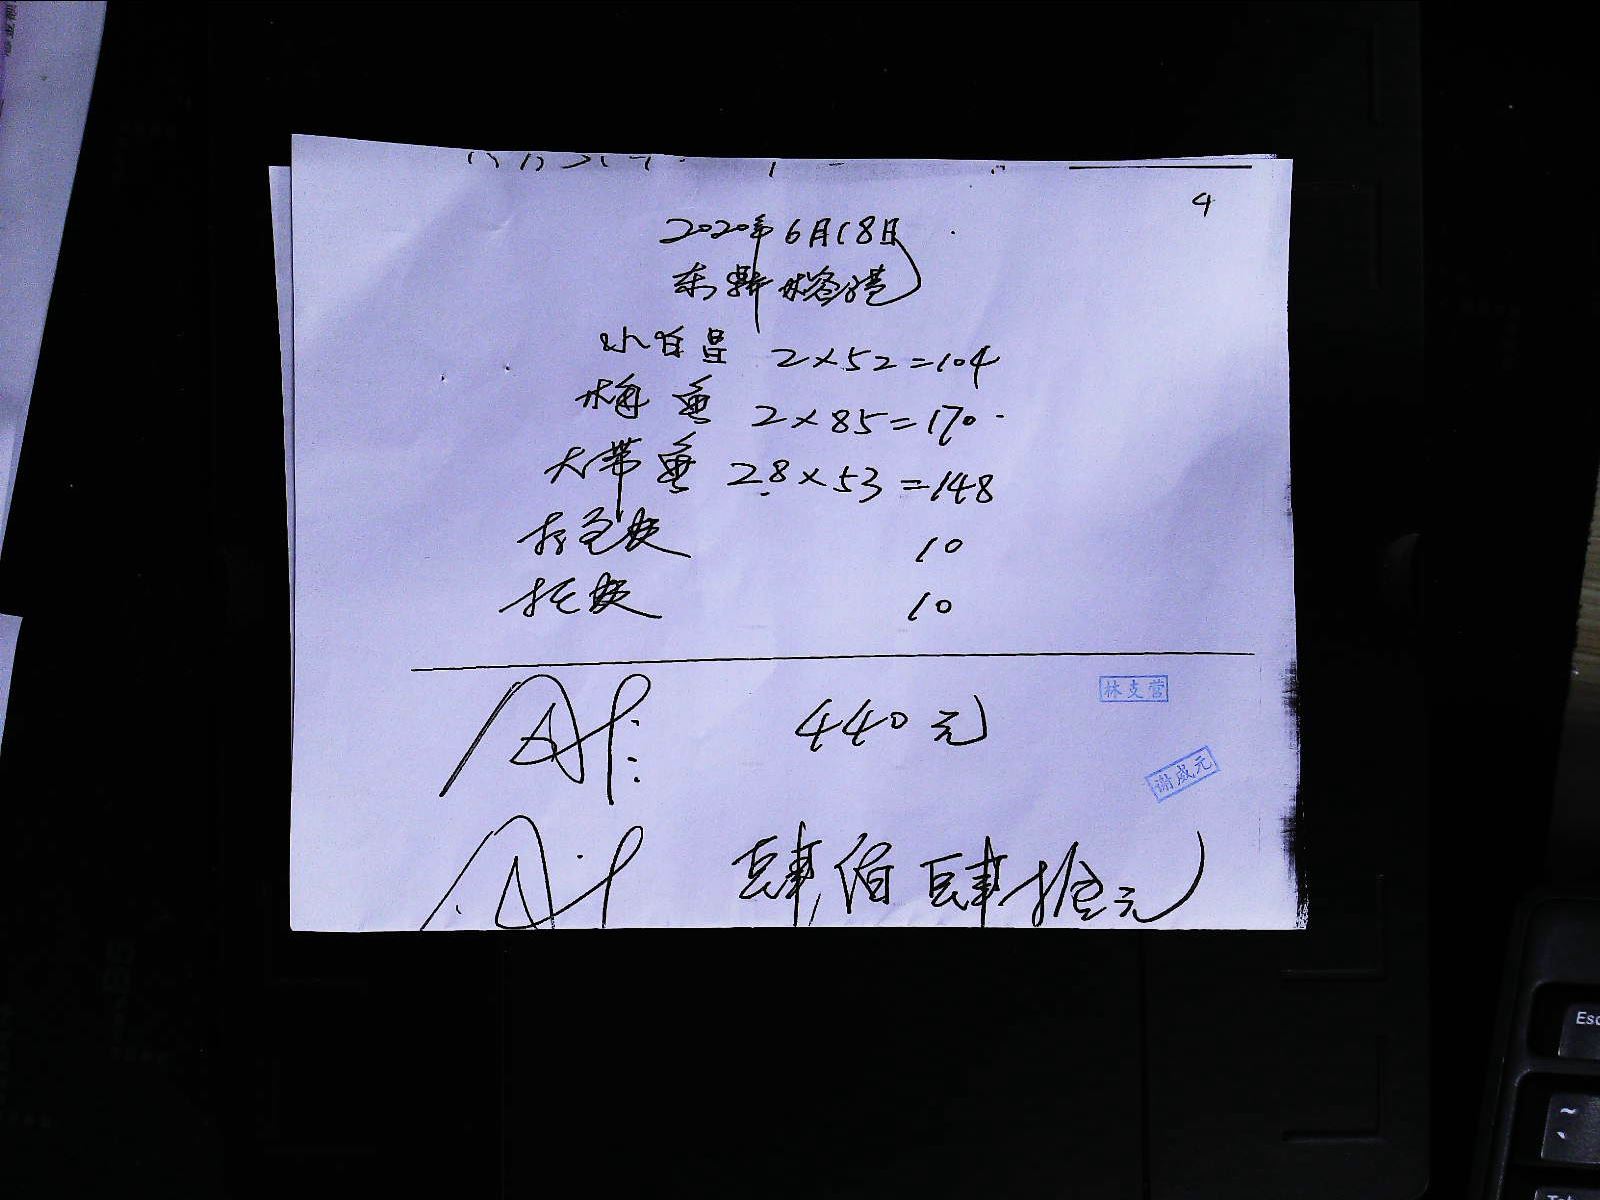 4
2020年6月18日
小白 2×52=104
梅鱼 2×85=170
大带鱼 2.8×53=148
打包费 10
托费 10
林支营
440元
谢咸元
肆佰肆拾元
Esc
~